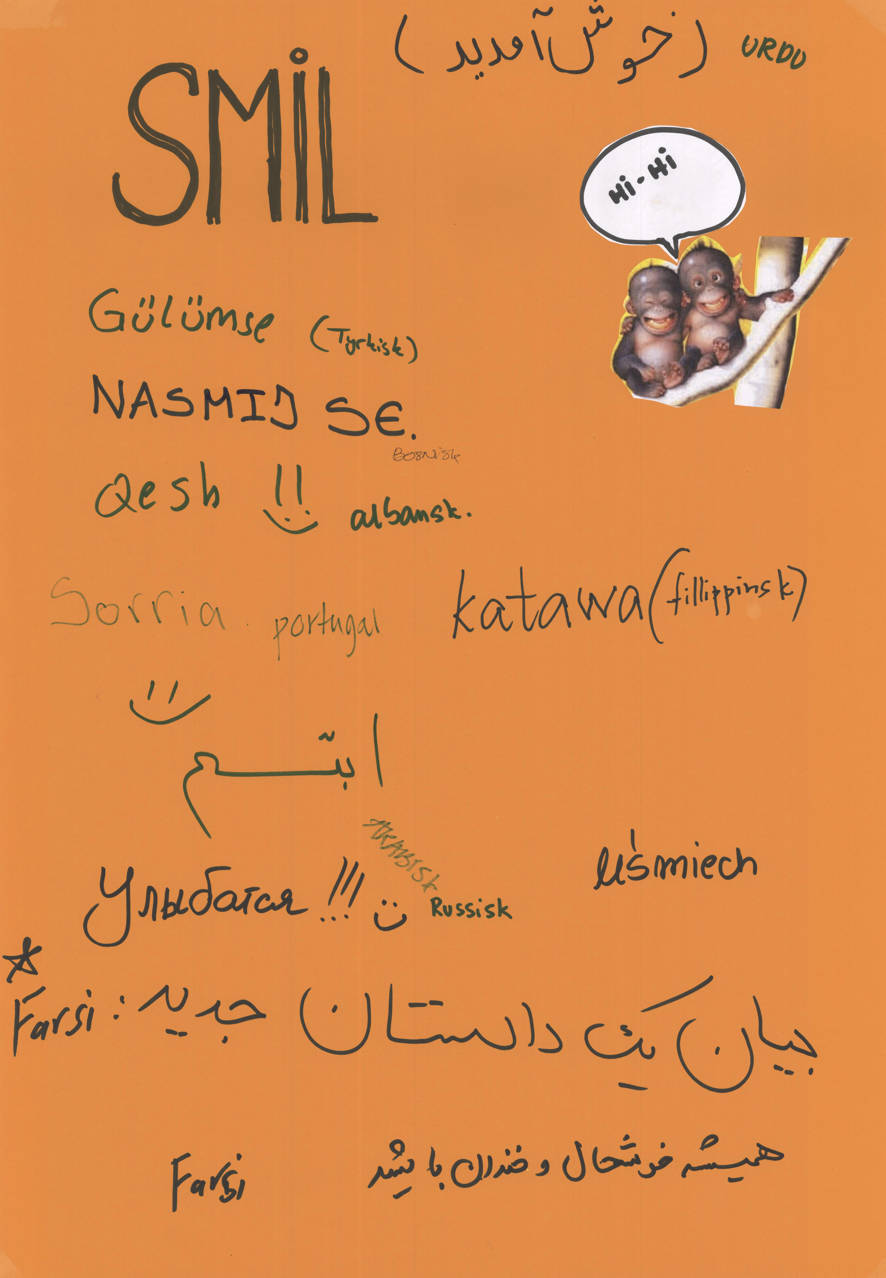 (خوش آمدید) URDU
SMİL
Hi-Hi
Gülümse (Tyrkisk)
NASMIJ SE.
Bosnisk
Qesh !! albansk.
Sorria. portugal
katawa (fillippinsk)
ابتسم
ARABISK
Улыбатся !!! Russisk
Uśmiech
Farsi: بیان یک داستان جدید
Farsi همیشه خوشحال و خندان باشید